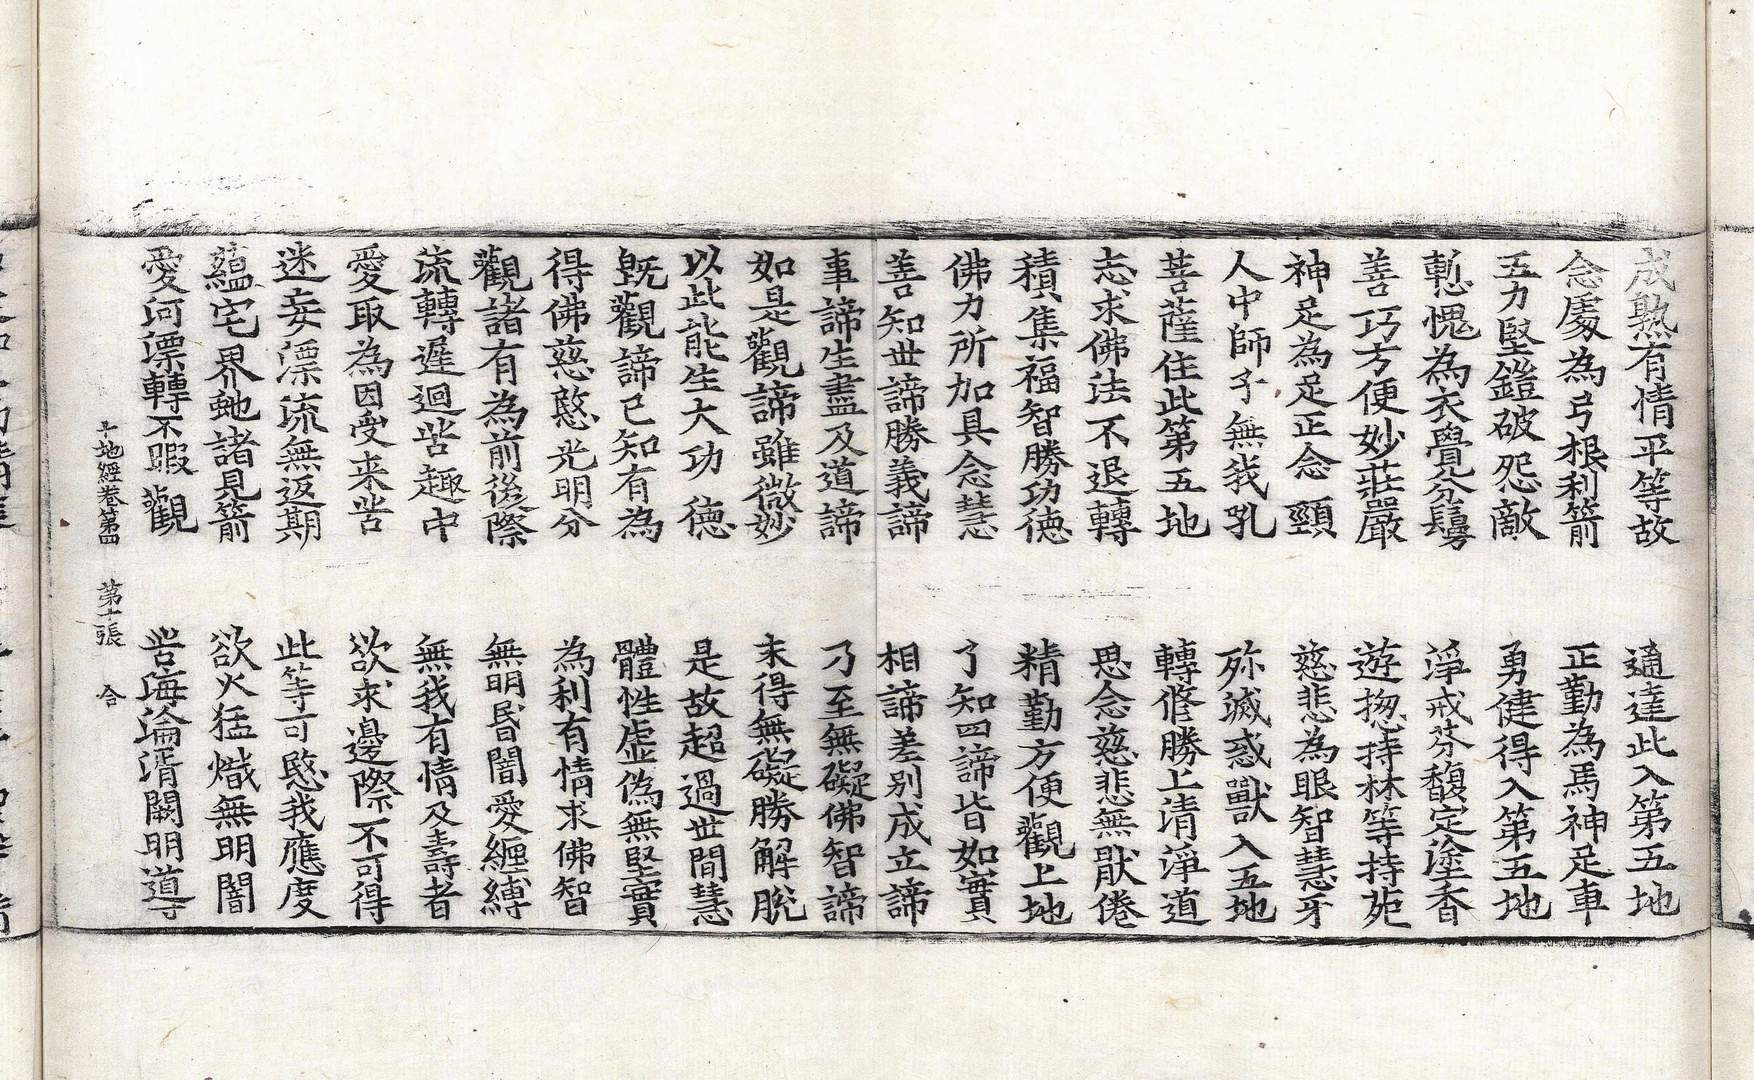 成熟有情平等故　通達此入第五地
念處為弓根利箭　正勤為馬神足車
五力堅鎧破怨敵　勇健得入第五地
慙愧為衣覺分鬘　淨戒芬馥定塗香
善巧方便妙莊嚴　遊揔持林等持苑
神足為足正念頸　慈悲為眼智慧牙
人中師子無我吼　殄滅惑獸入五地
菩薩住此第五地　轉修勝上清淨道
志求佛法不退轉　思念慈悲無猒倦
積集福智勝功德　精勤方便觀上地
佛力所加具念慧　了知四諦皆如實
善知世諦勝義諦　相諦差別成立諦
事諦生盡及道諦　乃至無礙佛智諦
如是觀諦雖微妙　未得無礙勝解脫
以此能生大功德　是故超過世間慧
既觀諦已知有為　體性虛偽無堅實
得佛慈愍光明分　為利有情求佛智
觀諸有為前後際　無明昏闇愛纏縛
流轉遲迴苦趣中　無我有情及壽者
愛取為因受来苦　欲求邊際不可得
迷妄漂流無返期　此等可愍我應度
蘊宅界虵諸見箭　欲火猛熾無明闇
愛河漂轉不暇觀　苦海淪湑闕明導
十地經卷第四　第十張　合